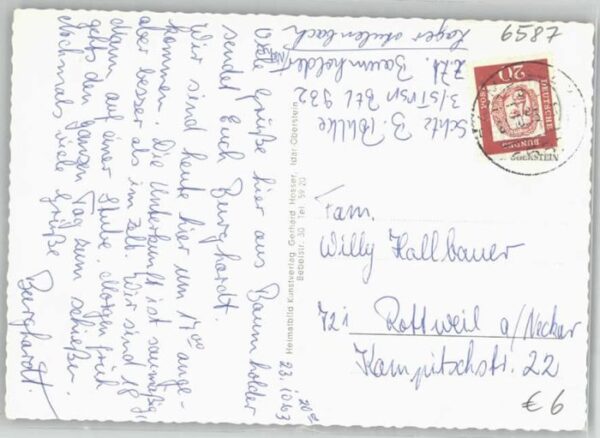 6587
Baumholder
23.10.63
20⁰⁰
Viele Grüße hier aus
sendet Euch Burghardt.
Wir sind heute hier um 14⁰⁰ ange-
kommen. Die Unterkunft ist saumäßig,
aber besser als im Zelt. Wir sind 18
Mann auf einer Stube. Morgen früh
gehts den ganzen Tag zum schießen.
Nochmals viele Grüße
Burghardt.
Schtz B.
932
z.Zt. Baumholder
Lager Aulenbach
Heimatbild Kunstverlag Gerhard Hosser, Idar-Oberstein
Bebelstr. 30 Tel. 59 20
20
DEUTSCHE
BUNDESPOST
Fam.
Willy Hallbauer
721 Rottweil a/Neckar
Kampitschstr. 22
€ 9